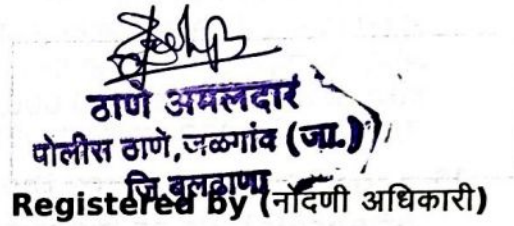 ठाणे अमलदार
पोलीस ठाणे,जळगांव (जा.)
जि.बुलढाणा
Registered by (नोंदणी अधिकारी)